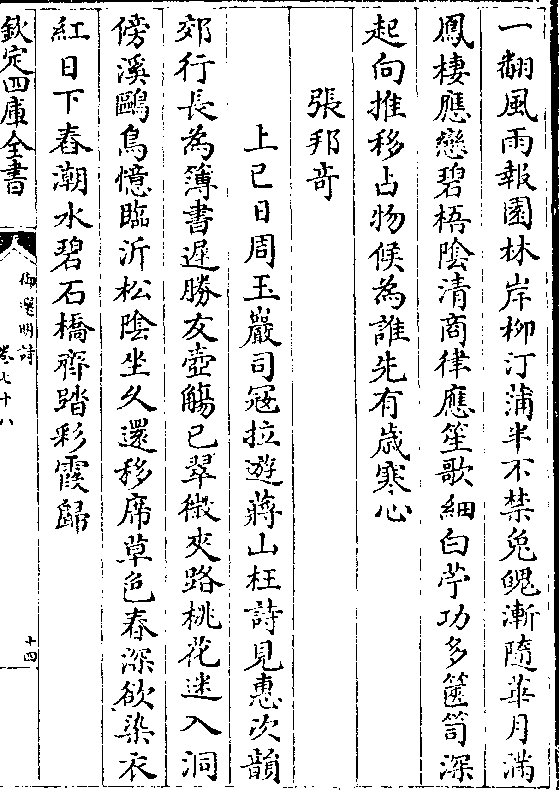 一翻風雨報園林岸柳汀蒲半不禁兔魄漸隨華月滿
鳳棲應戀碧梧陰清商律應笙歌細白苧功多篋笥深
起向推移占物候為誰先有歳寒心
張邦奇
上巳日周玉巖司冦拉遊蔣山枉詩見惠次韻
郊行長為簿書遲勝友壺觴已翠微夾路桃花迷入洞
傍溪鷗鳥憶臨沂松陰坐久還移席草色春深欲染衣
紅日下舂潮水碧石橋齊踏彩霞歸
欽定四庫全書
御選明詩
卷七十八
十四